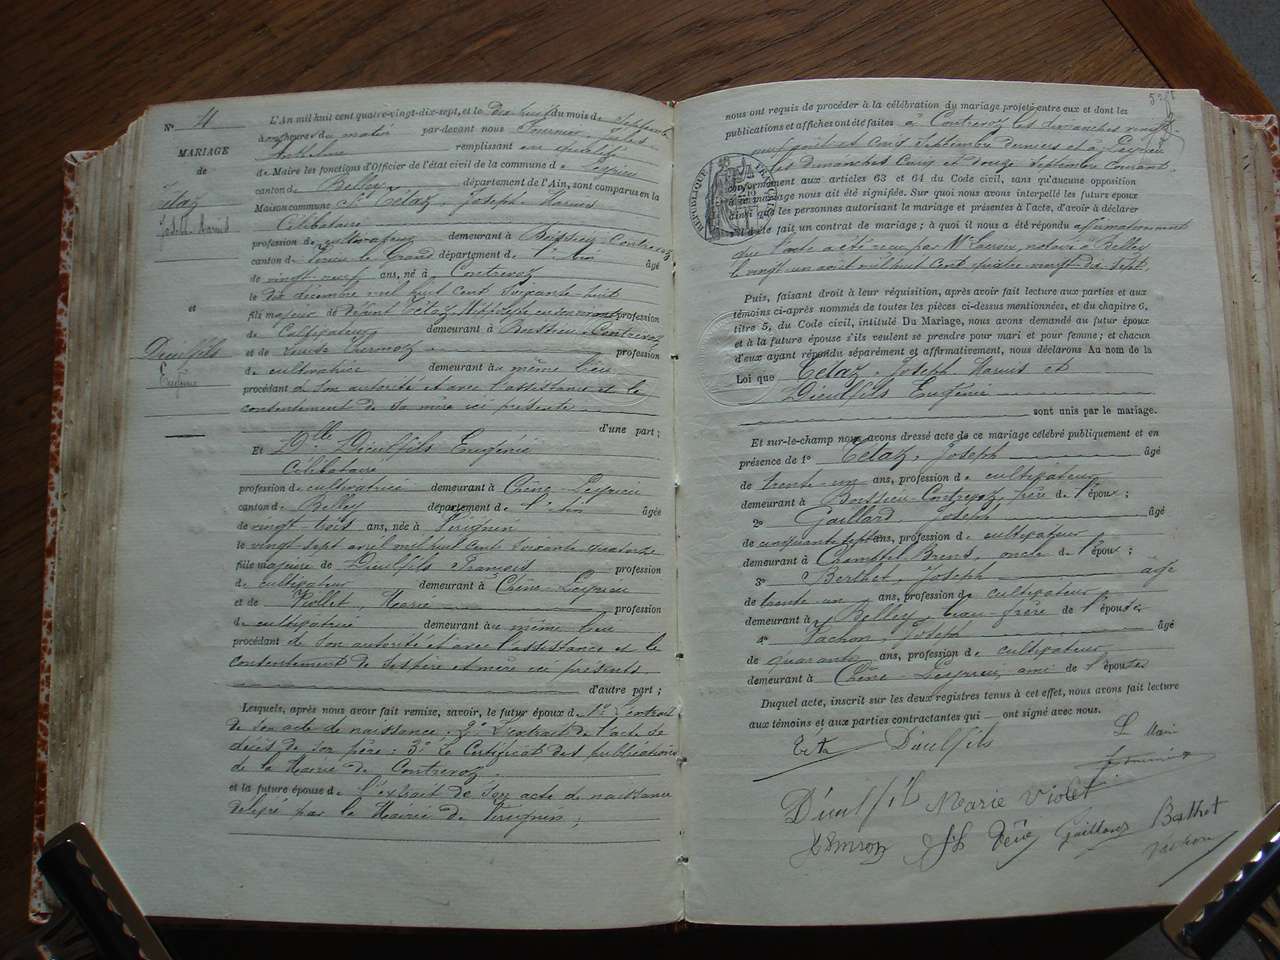 N° 4
MARIAGE
de
Tétaz
Joseph Marius
et
Dieulfils
Eugénie
L'An mil huit cent quatre-vingt-dix-sept, et le dix huit du mois de Septembre
à heures du matin par-devant nous Fournier
Anthelme remplissant en qualité
de Maire les fonctions d'Officier de l'état civil de la commune de Peyrieu
canton de Belley département de l'Ain, sont comparus en la
Maison commune S. Tétaz, Joseph Marius
Célibataire
profession de cultivateur demeurant à Boissieu Contrevoz
canton de Virieu le Grand département de l'Ain âgé
de vingt neuf ans, né à Contrevoz
le dix décembre mil huit cent soixante huit
fils majeur de défunt Tétaz Hippolyte en son vivant profession
de Cultivateur demeurant à Boissieu Contrevoz
et de Louise Thermoz profession
de cultivatrice demeurant au même lieu
procédant de son autorité et avec l'assistance et le
consentement de sa mère ici présente
d'une part ;
Et Dlle Dieulfils Eugénie
Célibataire
profession de cultivatrice demeurant à Chêne-Peyrieu
canton de Belley département de l'Ain âgée
de vingt-trois ans, née à Virignin
le vingt sept avril mil huit cent soixante quatorze
fille majeure de Dieulfils François profession
de cultivateur demeurant à Chêne-Peyrieu
et de Viollet, Marie profession
de cultivatrice demeurant au même lieu
procédant de son autorité et avec l'assistance et le
consentement de ses père et mère ici présents
d'autre part ;
Lesquels, après nous avoir fait remise, savoir, le futur époux de 1° L'extrait
de son acte de naissance ; 2° L'extrait de l'acte de
décès de son père ; 3° Le Certificat des publications
de la Mairie de Contrevoz
et la future épouse de L'extrait de son acte de naissance
délivré par la Mairie de Virignin ;
nous ont requis de procéder à la célébration du mariage projeté entre eux et dont les
publications et affiches ont été faites à Contrevoz les dimanches vingt
neuf août et cinq Septembre derniers et à Peyrieu
les dimanches Cinq et douze Septembre Courant
conformément aux articles 63 et 64 du Code civil, sans qu'aucune opposition
à ce mariage nous ait été signifiée. Sur quoi nous avons interpellé les futurs époux
ainsi que les personnes autorisant le mariage et présentes à l'acte, d'avoir à déclarer
s'il a été fait un contrat de mariage ; à quoi il nous a été répondu affirmativement
que l'acte a été reçu par Me notaire à Belley
le vingt un août mil huit cent quatre vingt dix sept.
Puis, faisant droit à leur réquisition, après avoir fait lecture aux parties et aux
témoins ci-après nommés de toutes les pièces ci-dessus mentionnées, et du chapitre 6,
titre 5, du Code civil, intitulé Du Mariage, nous avons demandé au futur époux
et à la future épouse s'ils veulent se prendre pour mari et pour femme ; et chacun
d'eux ayant répondu séparément et affirmativement, nous déclarons Au nom de la
Loi que Tétaz, Joseph Marius et
Dieulfils Eugénie
sont unis par le mariage.
Et sur-le-champ nous avons dressé acte de ce mariage célébré publiquement et en
présence de 1° Tétaz, Joseph âgé
de trente-un ans, profession de cultivateur
demeurant à Boissieu-Contrevoz, frère de l'époux ;
2° Gaillard Joseph âgé
de cinquante sept ans, profession de cultivateur
demeurant à Brens, oncle de l'époux ;
3° Berthet, Joseph âgé
de trente-un ans, profession de cultivateur
demeurant à Belley, beau-frère de l'épouse
4° Vachon, Joseph âgé
de quarante ans, profession de cultivateur
demeurant à Chêne-Peyrieu, ami de l'épouse
Duquel acte, inscrit sur les deux registres tenus à cet effet, nous avons fait lecture
aux témoins et aux parties contractantes qui ont signé avec nous.
Dieulfils Le Maire
Dieulfils Marie Violet Fournier
Gaillard Berthet
Vachon